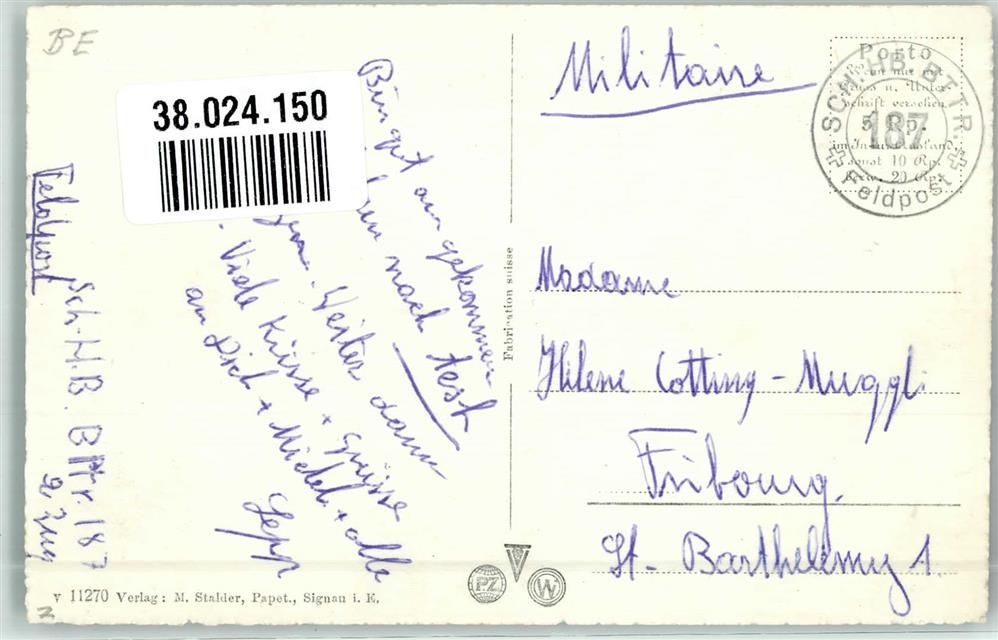 BE
38.024.150
Bin gut angekommen
nach test
Weiter dann
Viele Küsse + Grüsse
an Dich + Michel + alle
Sepp
Feldpost
Sch. H.B. Bttr. 187
2. Zug
Militaire
Porto
5 Rp.
sonst 10 Rp.
bezw. 20 Rp.
SCH. HB. BTTR.
187
Feldpost
Madame
Hélène Cotting - Muggli
Fribourg.
St. Barthélemy 1.
Fabrication suisse
PZ
W
v 11270 Verlag: M. Stalder, Papet., Signau i. E.